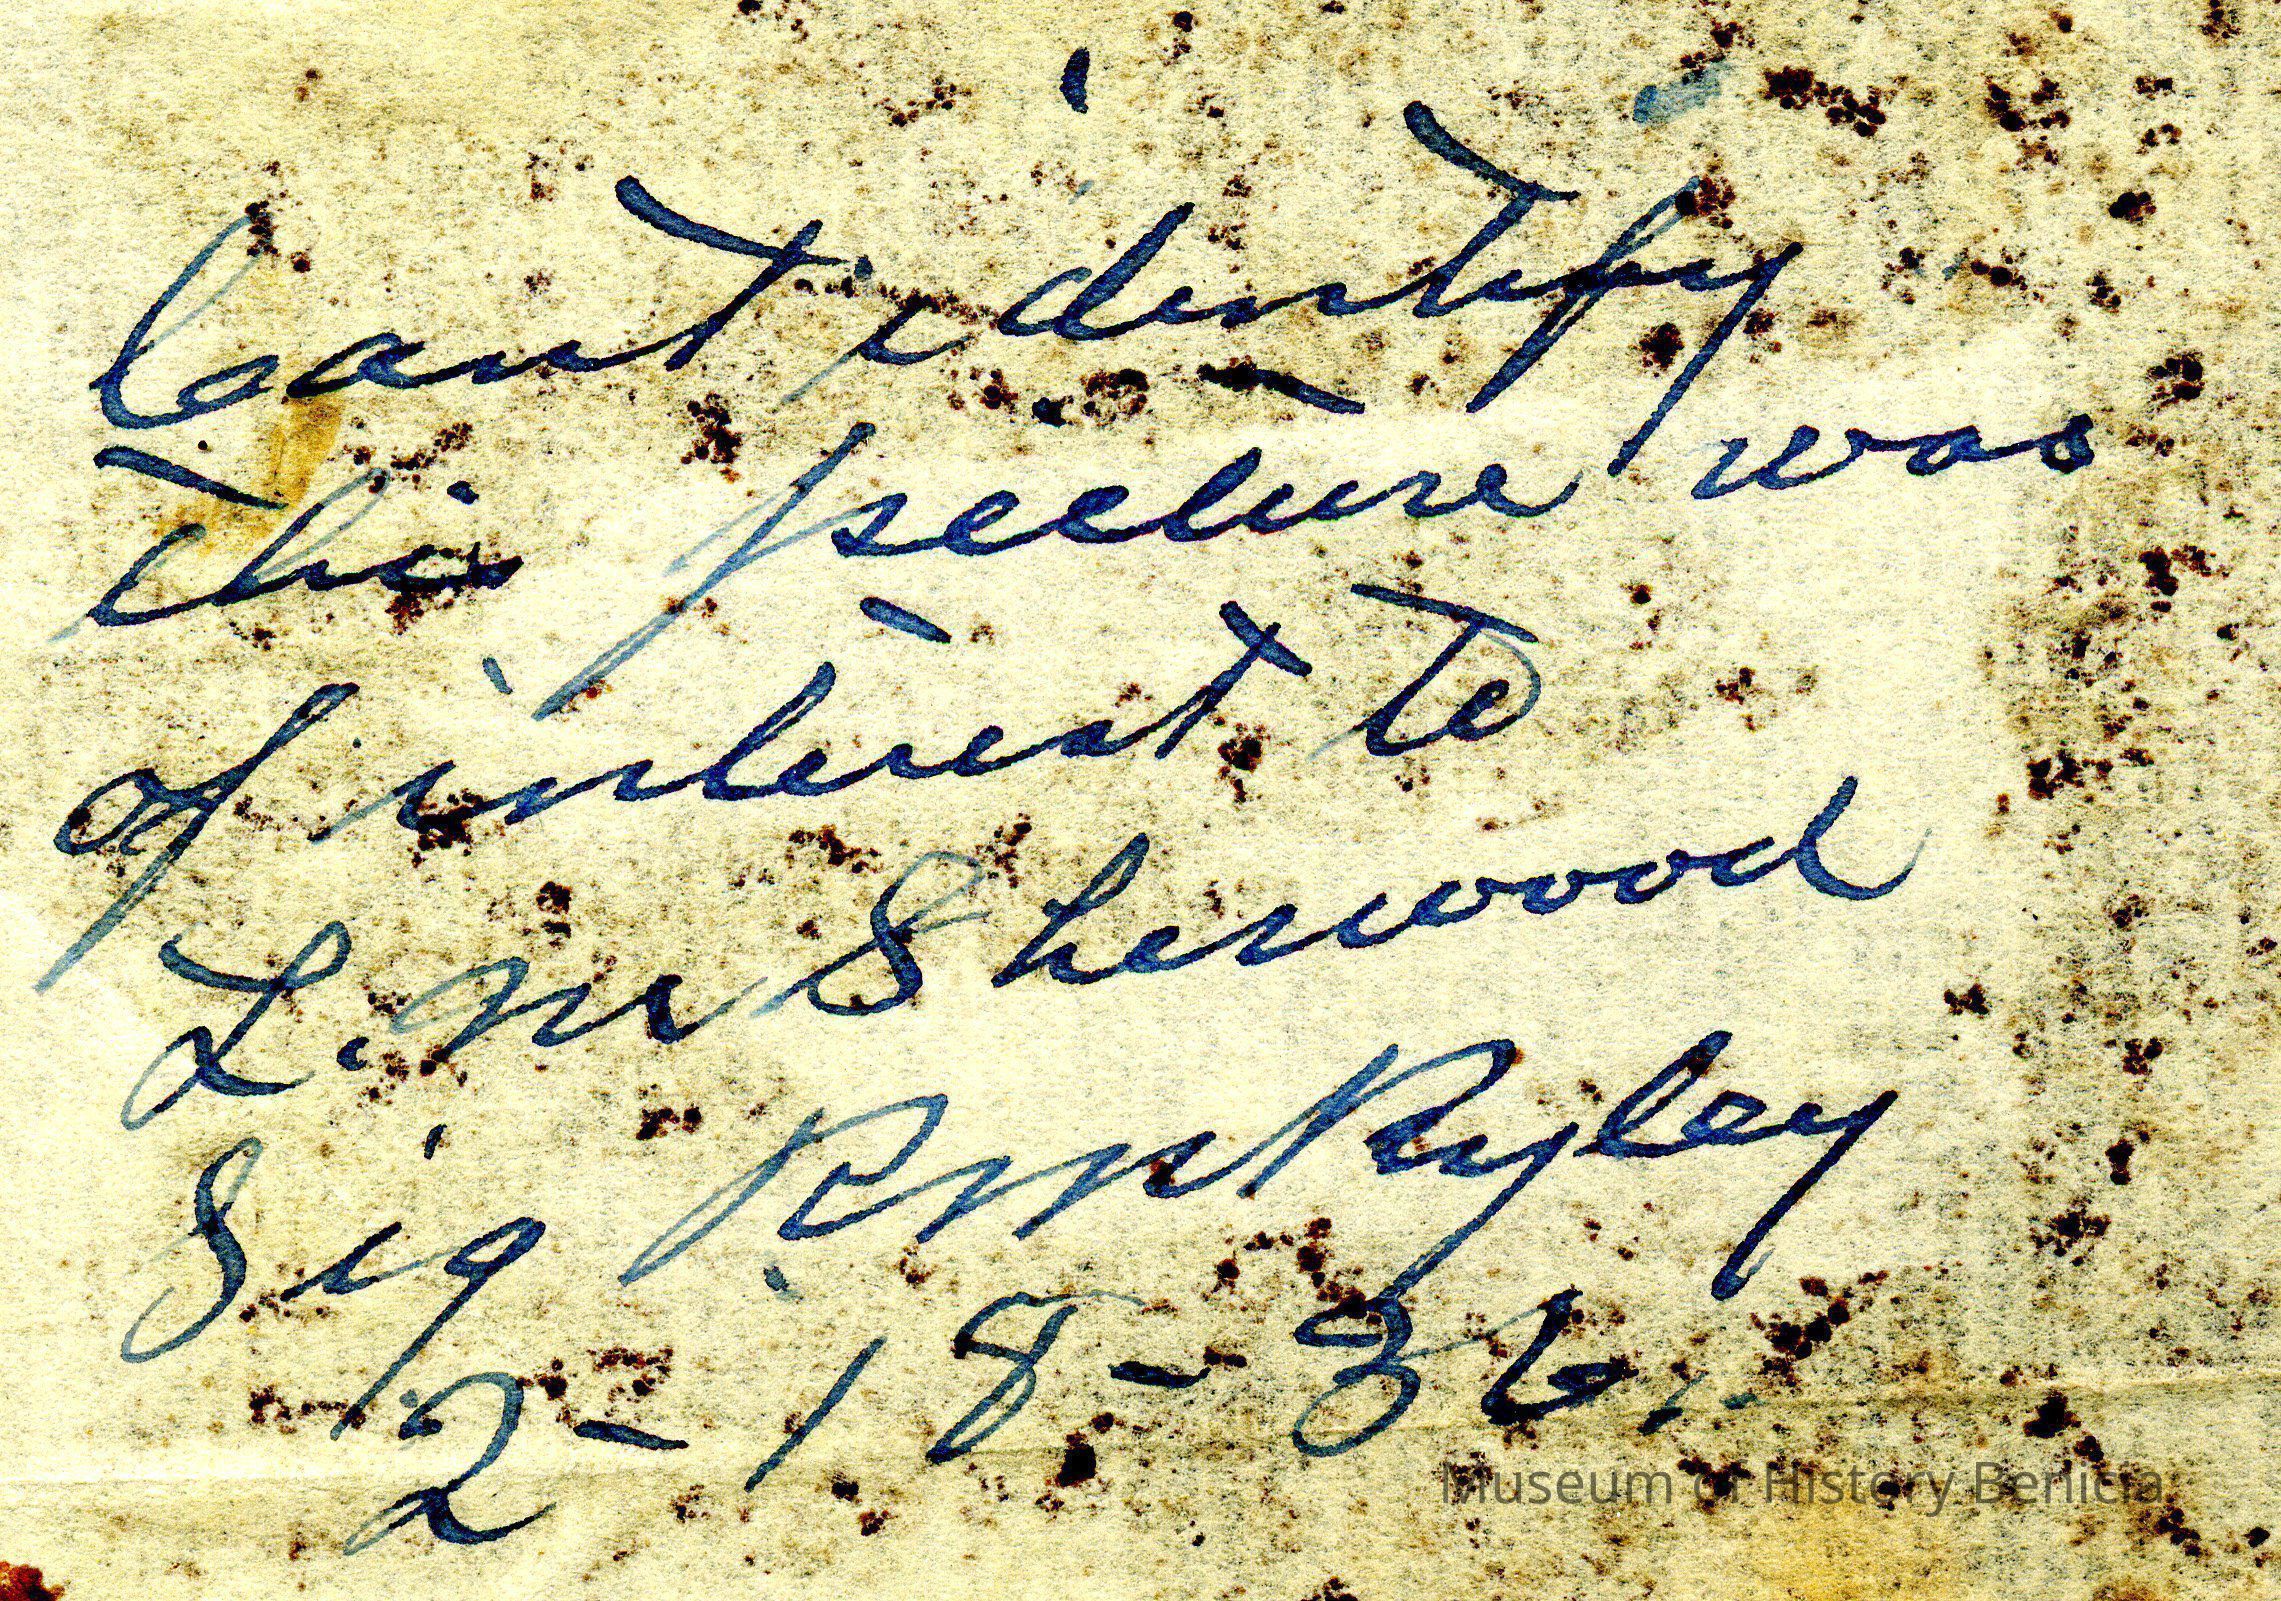 Can't identify
this picture was
of interest to
L. M Sherwood
Sig Pm Ryley
2-18-36.
Museum of History Benicia